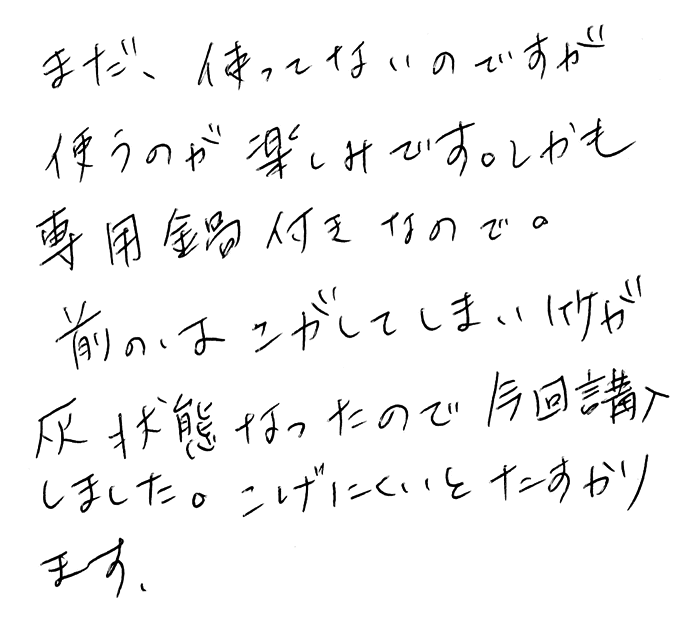 まだ、使ってないのですが
使うのが楽しみです。しかも
専用鍋付きなので。
前のはこがしてしまい竹が
灰状態なったので今回講入
しました。こげにくいとたすかり
ます、